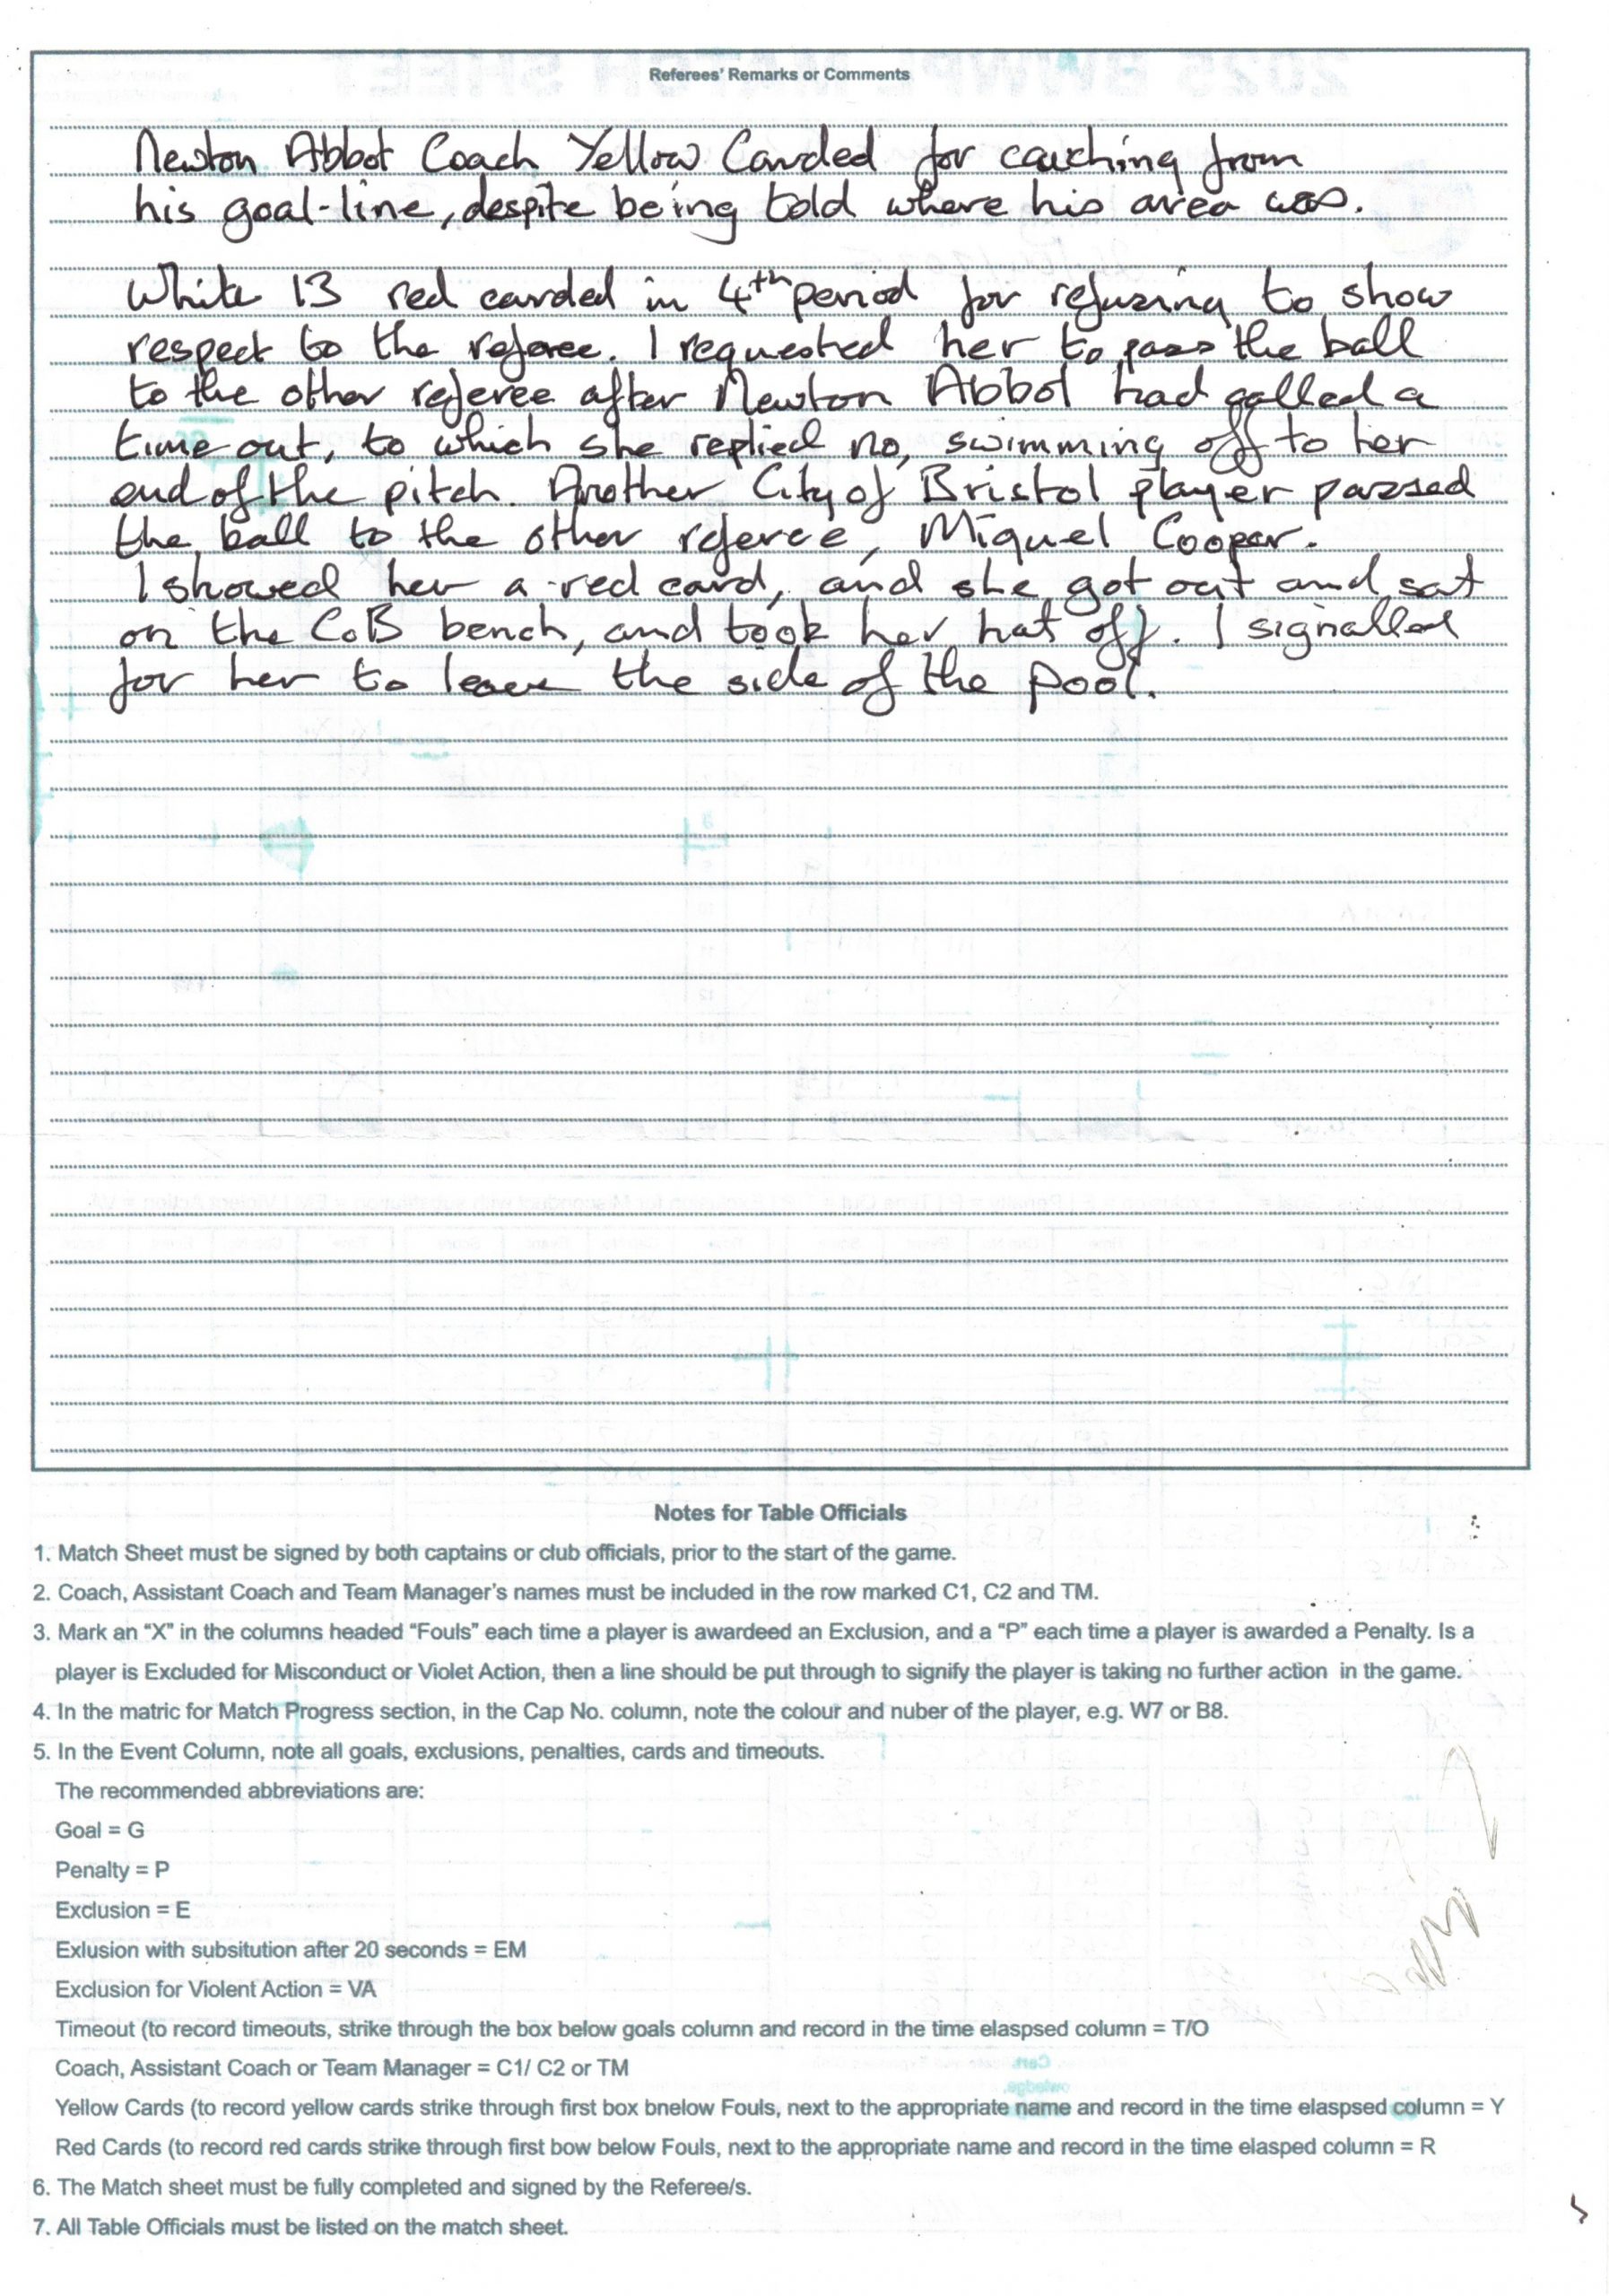 Referees' Remarks or Comments
Newton Abbot Coach Yellow Carded for caching from
his goal-line, despite being told where his area was.
White 13 red carded in 4th period for refusing to show
respect to the referee. I requested her to pass the ball
to the other referee after Newton Abbot had called a
time out, to which she replied no, swimming off to her
end of the pitch. Another City of Bristol player passed
the ball to the other referee, Miquel Cooper.
I showed her a red card, and she got out and sat
on the CoB bench, and took her hat off. I signalled
for her to leave the side of the pool.
Notes for Table Officials
1. Match Sheet must be signed by both captains or club officials, prior to the start of the game.
2. Coach, Assistant Coach and Team Manager's names must be included in the row marked C1, C2 and TM.
3. Mark an "X" in the columns headed "Fouls" each time a player is awardeed an Exclusion, and a "P" each time a player is awarded a Penalty. Is a
player is Excluded for Misconduct or Violet Action, then a line should be put through to signify the player is taking no further action in the game.
4. In the matric for Match Progress section, in the Cap No. column, note the colour and nuber of the player, e.g. W7 or B8.
5. In the Event Column, note all goals, exclusions, penalties, cards and timeouts.
The recommended abbreviations are:
Goal = G
Penalty = P
Exclusion = E
Exlusion with subsitution after 20 seconds = EM
Exclusion for Violent Action = VA
Timeout (to record timeouts, strike through the box below goals column and record in the time elaspsed column = T/O
Coach, Assistant Coach or Team Manager = C1/ C2 or TM
Yellow Cards (to record yellow cards strike through first box bnelow Fouls, next to the appropriate name and record in the time elaspsed column = Y
Red Cards (to record red cards strike through first bow below Fouls, next to the appropriate name and record in the time elasped column = R
6. The Match sheet must be fully completed and signed by the Referee/s.
7. All Table Officials must be listed on the match sheet.